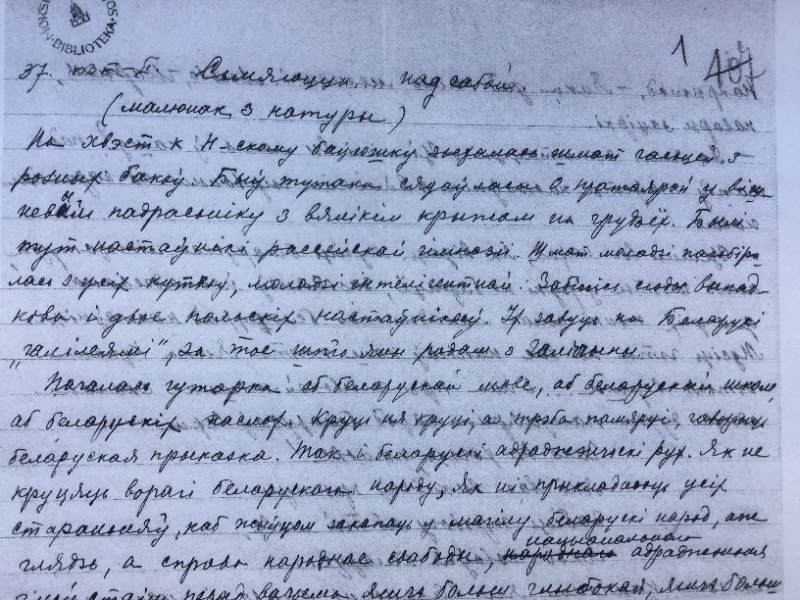 BIBLIOTEKA
1
107
37. Сьмяюцца над сабой.
(малюнак з натуры)
На хвэст к Н-скому бацюшку зьехалась шмат гасьцей з
розных бакоў. Быў тутака і у
падрасьніку з вялікім крыжам на грудзёх. Былі
тут настаўнікі рассейскай гімназіі. Шмат моладзі пазьбіра-
лась з усіх куткоў, моладзі інтэлігентнай. сюды выпад-
кова і двое польскіх настаўнікоў. Іх завуць на Беларусі
"галілеямі", за тое што яны родам з Галіцыі
Пачалась гутарка аб беларускай мове, аб беларускай школе,
аб беларускіх Круці ня круці, а трэба памярці, гаворыць
беларуская прыказка. Так і беларускі адраджэнскі рух. Як не
круцяць ворагі беларускаго народу, як ні прыкладаюць усіх
стараньняў, каб жыўцом закапаць у магілу беларускі народ, але
нацыональнаго
глядзь, а справа народнае свабоды, народнаго адраджэньня
стаіць перад вачыма яшчэ больш глыбокая, яшчэ больш